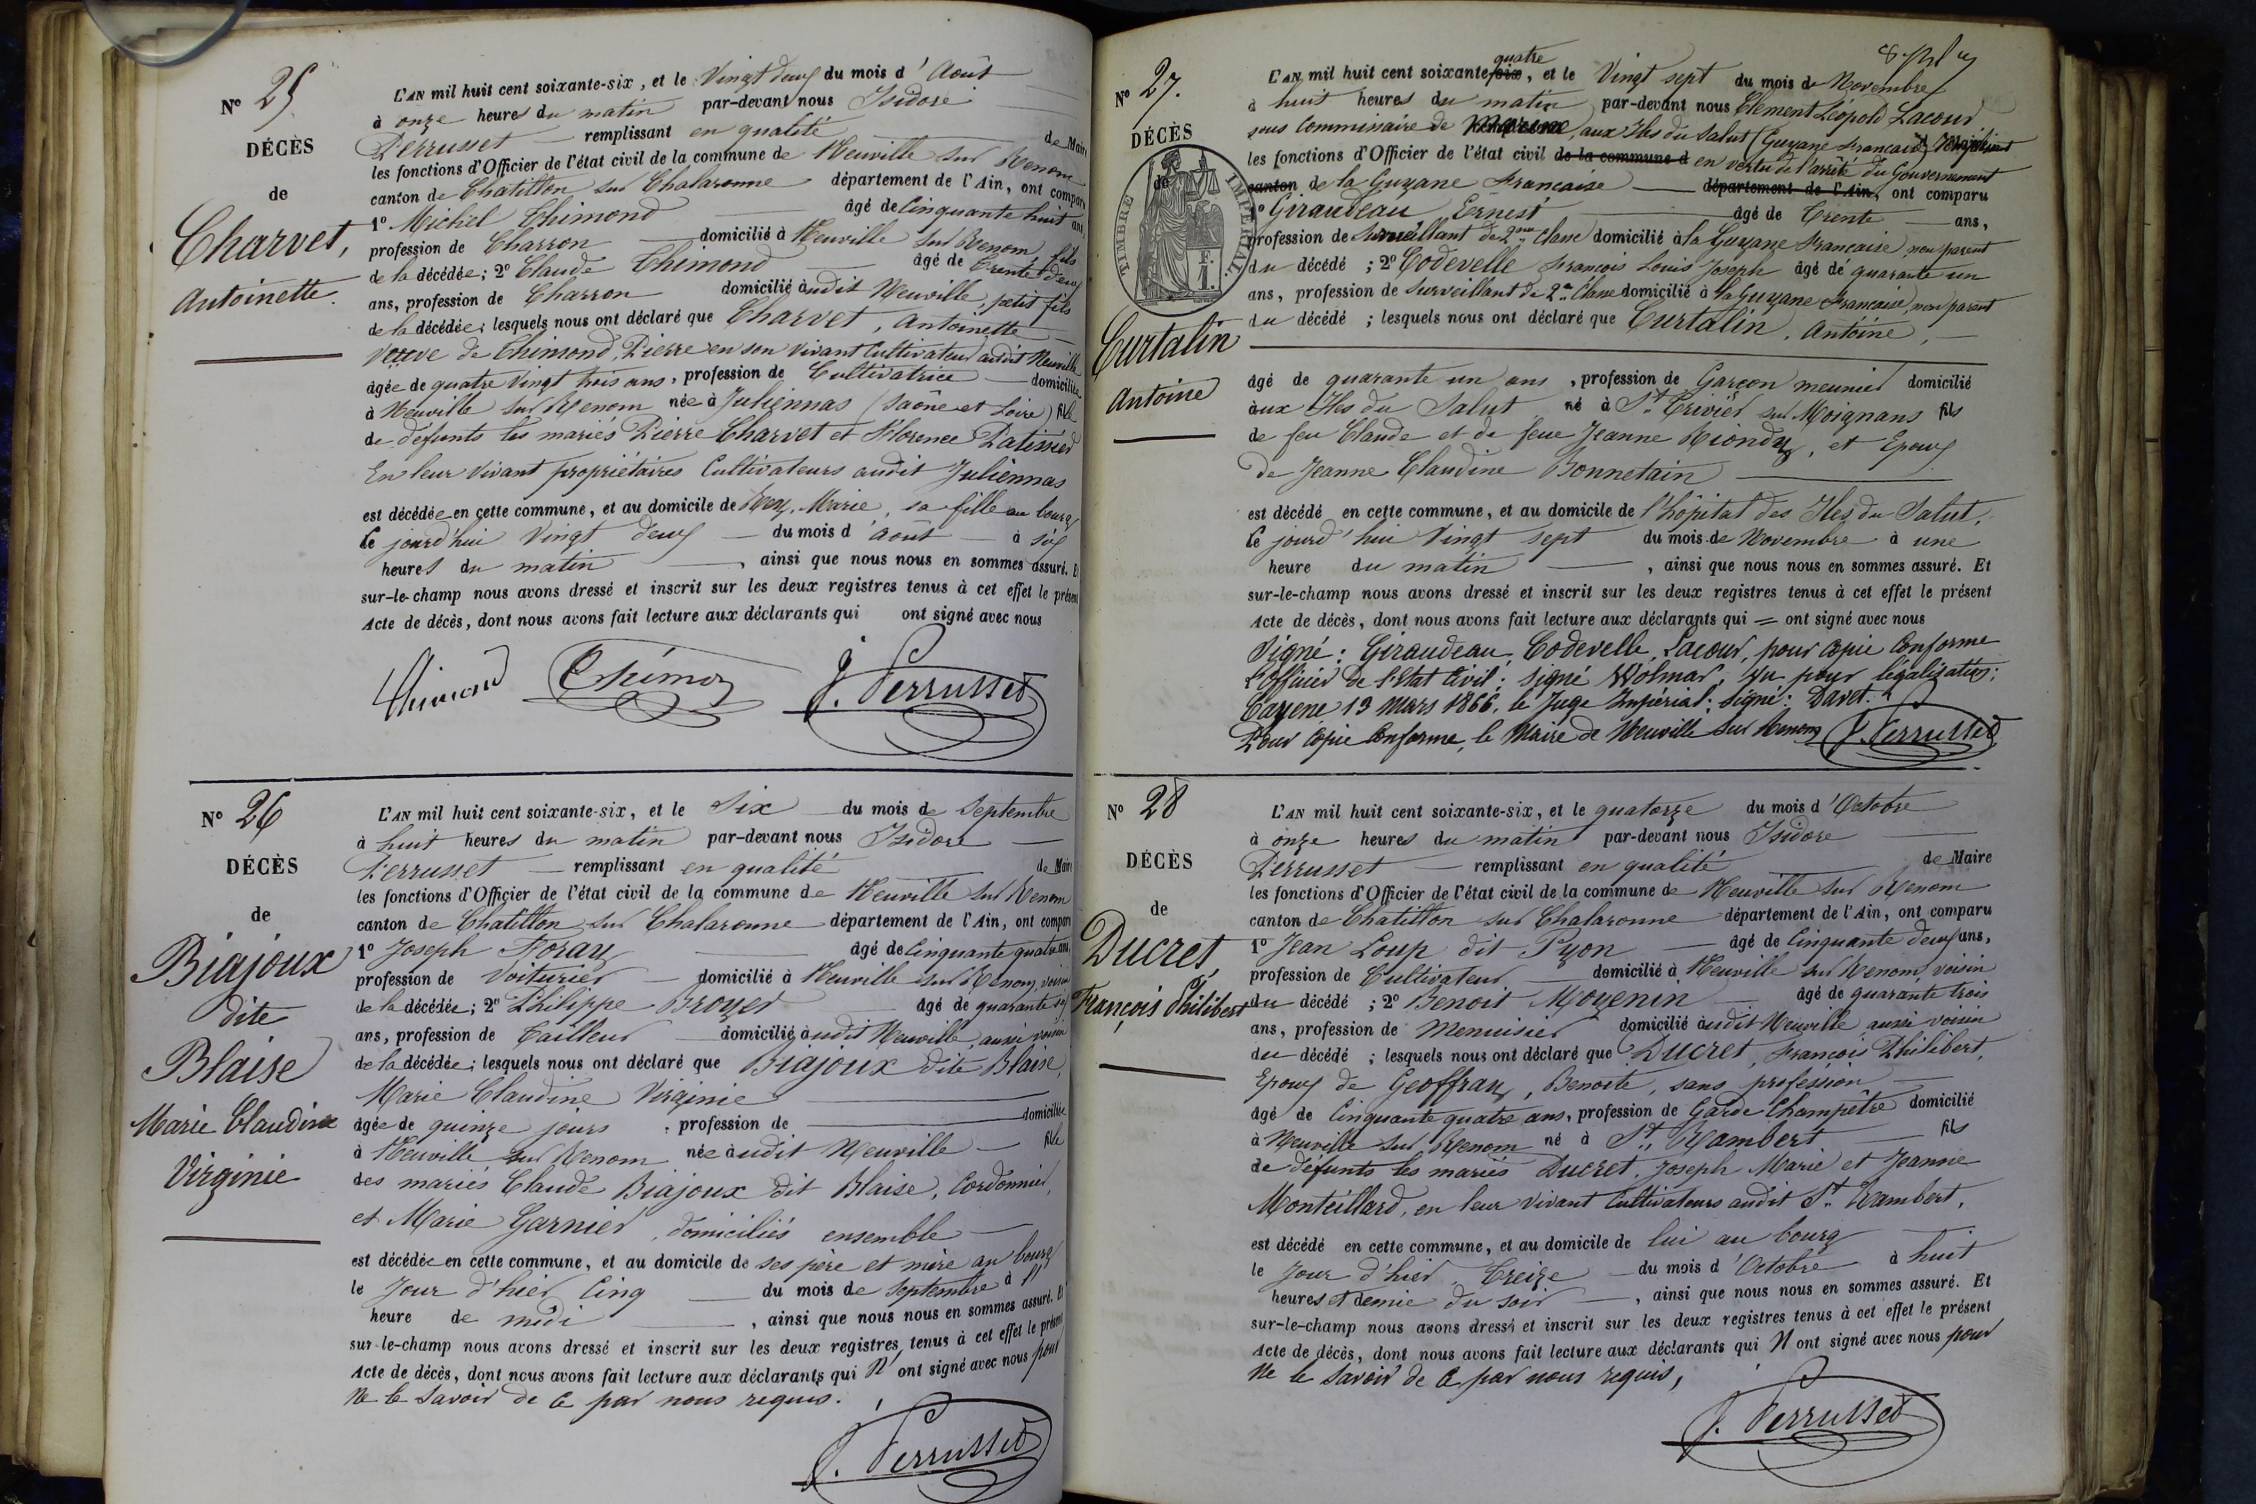 N° 25
DÉCÈS
de
Charvet,
Antoinette.
L'AN mil huit cent soixante-six, et le Vingt deux du mois d'Août
à onze heures du matin par-devant nous Isidore
Perrusset remplissant en qualité de Maire
les fonctions d'Officier de l'état civil de la commune de Neuville sur Renom
canton de Chatillon sur Chalaronne département de l'Ain, ont comparu
1° Michel Thimond âgé de Cinquante huit ans
profession de Charron domicilié à Neuville sur Renom, fils
de la décédée; 2° Claude Thimond âgé de Trente deux
ans, profession de Charron domicilié audit Neuville, petit fils
de la décédée; lesquels nous ont déclaré que Charvet, Antoinette
Veuve de Thimond, Pierre en son vivant Cultivateur audit Neuville
âgée de quatre vingt trois ans, profession de Cultivatrice domiciliée
à Neuville sur Renom née à Juliennas (Saône et Loire) fille
de défunts les mariés Pierre Charvet et Florence Patissier
En leur vivant propriétaires Cultivateurs audit Juliennas
est décédée en cette commune, et au domicile de Marie, sa fille au bourg
le jourd'hui Vingt deux du mois d'Août à six
heures du matin, ainsi que nous nous en sommes assuré. Et
sur-le-champ nous avons dressé et inscrit sur les deux registres tenus à cet effet le présent
Acte de décès, dont nous avons fait lecture aux déclarants qui ont signé avec nous
Thimond Thimon J. Perrusset
N° 26
DÉCÈS
de
Biajoux
dite
Blaise
Marie Claudine
Virginie
L'AN mil huit cent soixante-six, et le Six du mois de Septembre
à huit heures du matin par-devant nous Isidore
Perrusset remplissant en qualité de Maire
les fonctions d'Officier de l'état civil de la commune de Neuville sur Renom
canton de Chatillon sur Chalaronne département de l'Ain, ont comparu
1° Joseph Noray âgé de Cinquante quatre ans,
profession de Voiturier domicilié à Neuville sur Renom, voisin
de la décédée; 2° Philippe Broyer âgé de quarante six
ans, profession de Tailleur domicilié audit Neuville, aussi voisin
de la décédée; lesquels nous ont déclaré que Biajoux dite Blaise,
Marie Claudine Virginie
âgée de quinze jours, profession de domiciliée
à Neuville sur Renom née audit Neuville fille
des mariés Claude Biajoux dit Blaise, Cordonnier,
et Marie Garnier, domiciliés ensemble
est décédée en cette commune, et au domicile de ses père et mère au bourg
le Jour d'hier Cinq du mois de Septembre à l'
heure de midi, ainsi que nous nous en sommes assuré. Et
sur-le-champ nous avons dressé et inscrit sur les deux registres tenus à cet effet le présent
Acte de décès, dont nous avons fait lecture aux déclarants qui N'ont signé avec nous pour
Ne le Savoir de Ce par nous requis.
J. Perrusset
N° 27.
DÉCÈS
de
TIMBRE IMPÉRIAL.
Curtalin
Antoine
quatre
L'AN mil huit cent soixante six, et le Vingt sept du mois de Novembre
à huit heures du matin par-devant nous Clément Léopold Lacour
sous Commissaire de Marine, aux Iles du Salut (Guyane Française) remplissant
les fonctions d'Officier de l'état civil de la commune d en vertu de l'arrêté du Gouvernement
canton de la Guyane Française département de l'Ain, ont comparu
1° Giraudeau, Ernest âgé de Trente ans,
profession de Surveillant de 2me Classe domicilié à la Guyane Française, non parent
du décédé; 2° Codevelle François Louis Joseph âgé de quarante un
ans, profession de Surveillant de 2e Classe domicilié à la Guyane Française, non parent
du décédé; lesquels nous ont déclaré que Curtalin, Antoine,
âgé de quarante un ans, profession de Garçon meunier domicilié
aux Iles du Salut né à St Trivier sur Moignans fils
de feu Claude et de feue Jeanne Riondy, et Epoux
de Jeanne Claudine Bonnetain
est décédé en cette commune, et au domicile de l'hôpital des Iles du Salut,
le jourd'hui Vingt sept du mois de Novembre à une
heure du matin, ainsi que nous nous en sommes assuré. Et
sur-le-champ nous avons dressé et inscrit sur les deux registres tenus à cet effet le présent
Acte de décès, dont nous avons fait lecture aux déclarants qui = ont signé avec nous
Signé: Giraudeau, Codevelle, Lacour, pour Copie Conforme
L'Officier de l'Etat Civil; signé Wolmar, Vu pour légalisation;
Cayene 13 Mars 1866, le Juge Impérial; signé: Davet.
Pour Copie Conforme, le Maire de Neuville sur Renom J. Perrusset
N° 28
DÉCÈS
de
Ducret,
François Philibert
L'AN mil huit cent soixante-six, et le quatorze du mois d'Octobre
à onze heures du matin par-devant nous Isidore
Perrusset remplissant en qualité de Maire
les fonctions d'Officier de l'état civil de la commune de Neuville sur Renom
canton de Chatillon sur Chalaronne département de l'Ain, ont comparu
1° Jean Loup dit Pyon âgé de Cinquante deux ans,
profession de Cultivateur domicilié à Neuville sur Renom, voisin
du décédé; 2° Benoit Moyenin âgé de quarante trois
ans, profession de Menuisier domicilié audit Neuville aussi voisin
du décédé; lesquels nous ont déclaré que Ducret, François Philibert,
Epoux de Geoffray, Benoite, sans profession
âgé de Cinquante quatre ans, profession de Garde Champêtre domicilié
à Neuville sur Renom né à St. Rambert fils
de défunts les mariés Ducret, Joseph Marie et Jeanne
Monteillard, en leur vivant Cultivateurs audit St. Rambert,
est décédé en cette commune, et au domicile de lui au bourg
le Jour d'hier Treize du mois d'Octobre à huit
heures et demie du soir, ainsi que nous nous en sommes assuré. Et
sur-le-champ nous avons dressé et inscrit sur les deux registres tenus à cet effet le présent
Acte de décès, dont nous avons fait lecture aux déclarants qui N'ont signé avec nous pour
Ne le Savoir de Ce par nous requis,
J. Perrusset